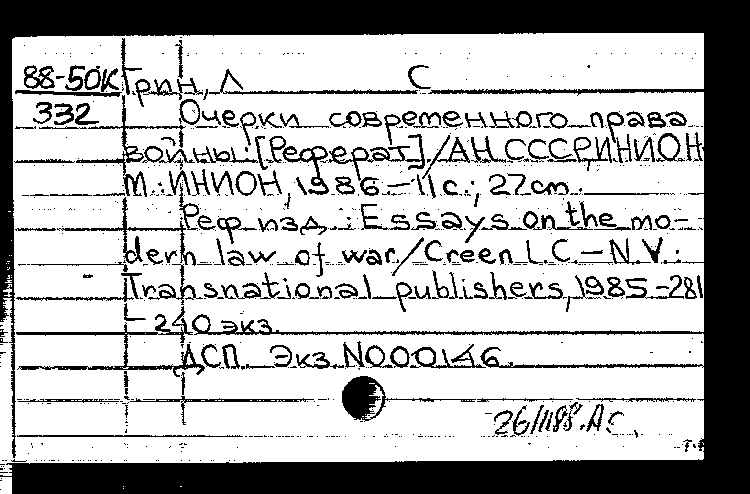 88-50К Грин, Л С
332 Очерки современного права
войны: [Реферат] / АН СССР, ИНИОН
М.: ИНИОН, 1986 – 11 с.; 27 cm.
Реф. изд.: Essays on the mo-
dern law of war / Creen L.C. – N.V.:
Transnational publishers, 1985 – 281
– 240 экз.
ДСП. Экз. N000146.
26/1188. АС.